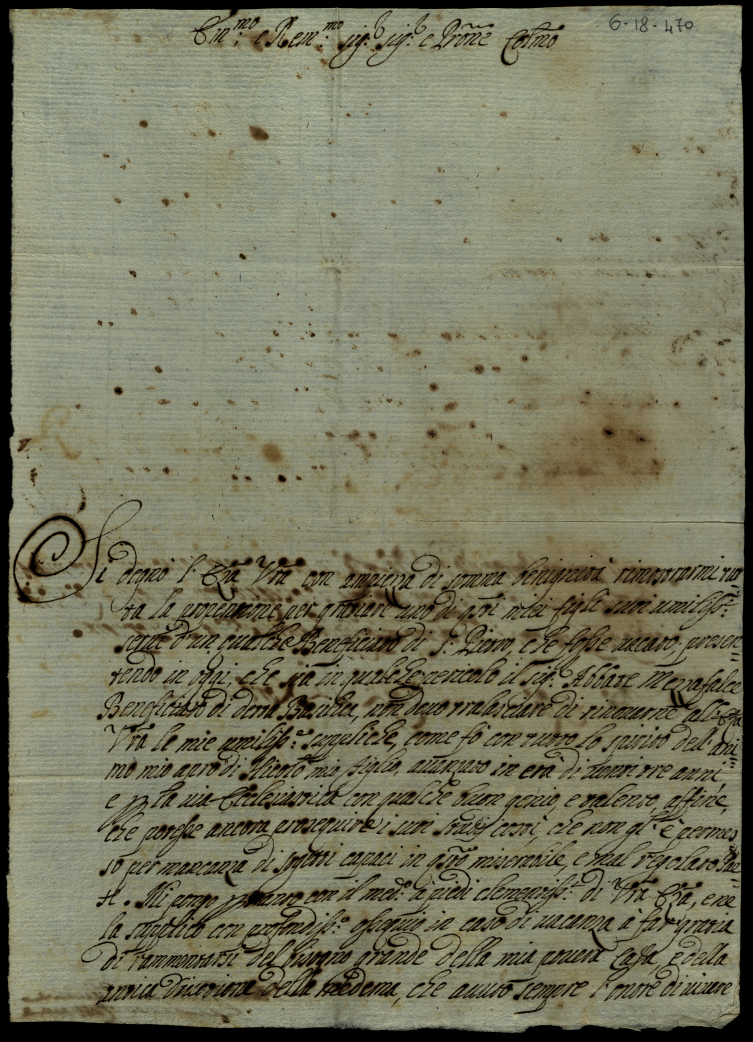 6·18·470
Em.mo e Rem.mo sig.r sig.r e Prõne Colmo
Si degnò l' Eza Vra con ampiezza di somma benignità rimostrarmi tut=
ta la propenzione per graziare uno di gsti miei figli suoi umiliss.i
servi d'un qualche Beneficiato di S. Pietro, che fosse vacato; presen=
tendo in oggi, che stà in qualche pericolo il sig.r Abbate Mezzafalce
Beneficiato di detta Basilica, non devo tralasciare di rinovarne all' Eza
Vra le mie umiliss.e suppliche, come fò con tutto lo spirito dell' ani=
mo mio a prò di Nicolò mio figlio, avanzato in età di venti tre anni
e p la via Ecclesiastica con qualche buon genio, e talento, affine,
che potesse ancora proseguire i suoi studi costì, che non gl' è permes=
so per mancanza di soggetti capaci in gsto miserabile, e mal regolato Pae=
se. Mi porgo p tanto con il med.o a piedi clementiss.i di Vra Eza, e ne
la supplico con profondiss.o ossequio in caso di vacanza à far grazia
di rammentarsi del bisogno grande della mia povera Casa, e della
antica divozione della medema, che avuto sempre l' onore di vivere